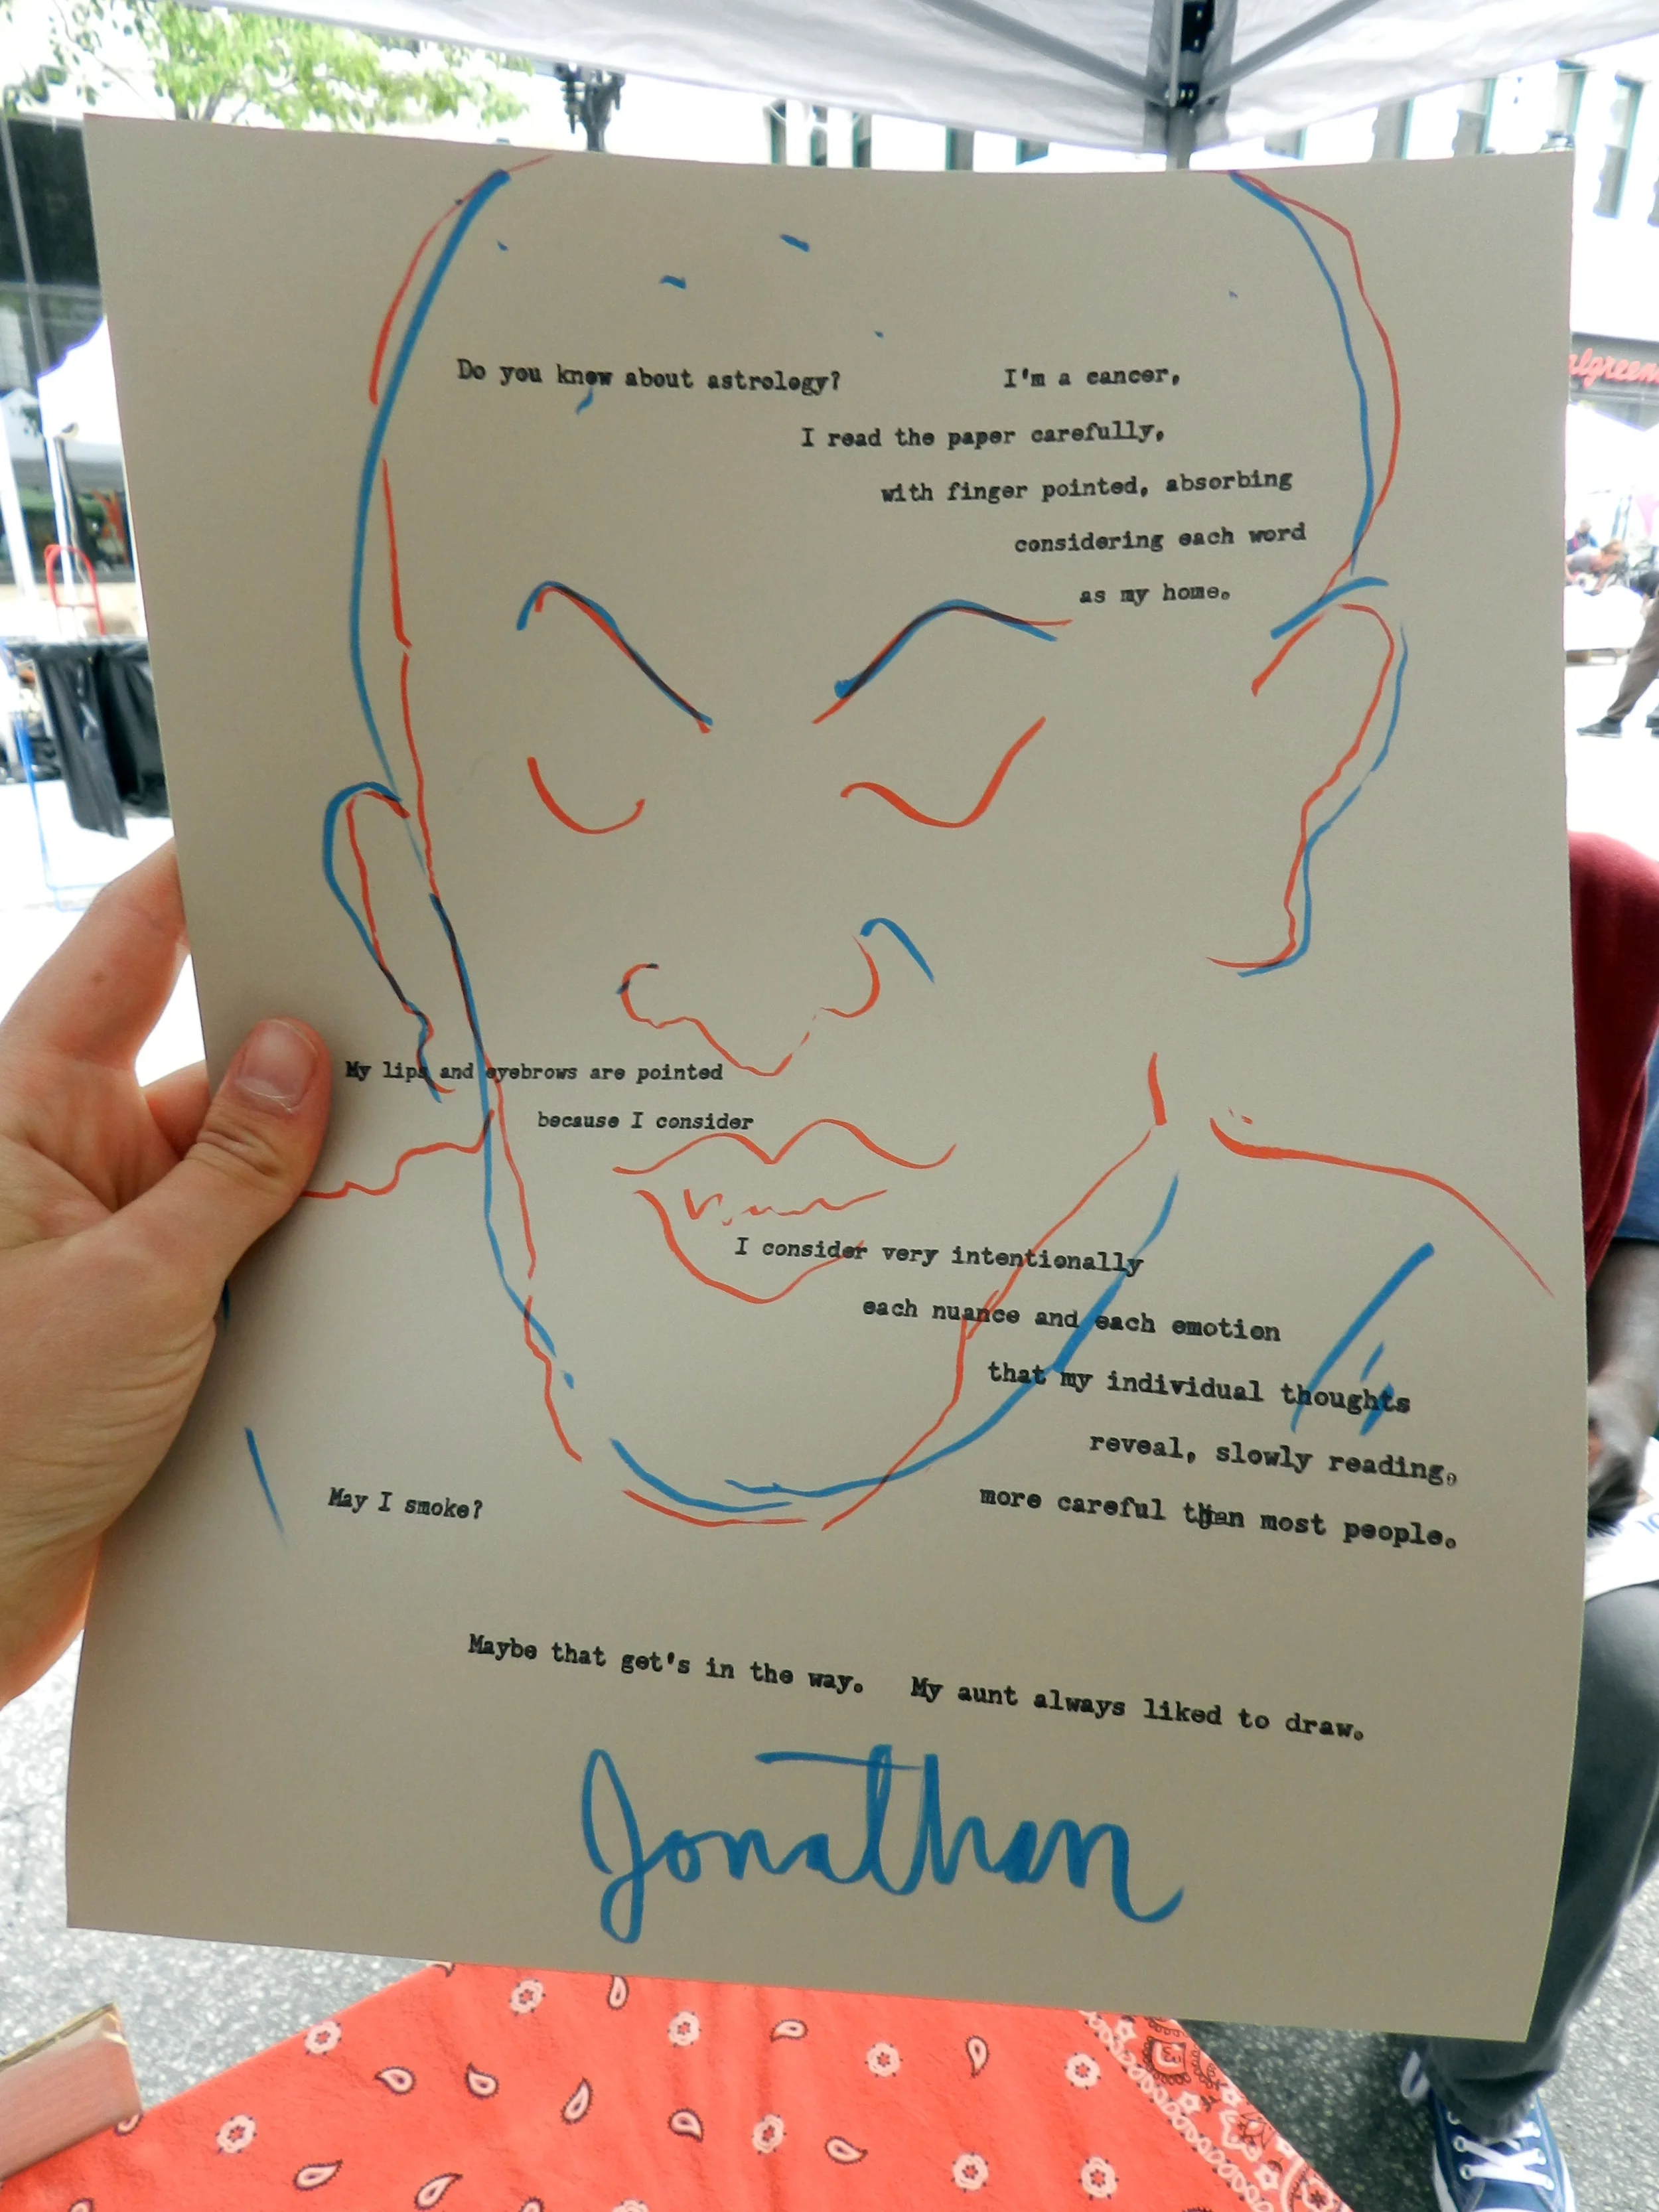 Do you know about astrology? I'm a cancer,
I read the paper carefully,
with finger pointed, absorbing
considering each word
as my home.
My lips and eyebrows are pointed
because I consider
I consider very intentionally
each nuance and each emotion
that my individual thoughts
reveal, slowly reading.
May I smoke?
more careful than most people.
Maybe that get's in the way. My aunt always liked to draw.
Jonathan